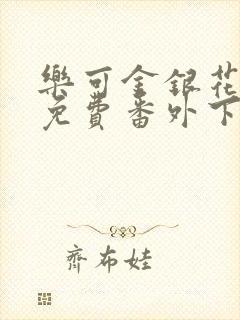 樂可金銀花
免費番外下
齊布娃